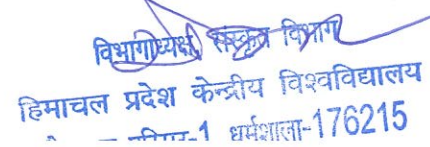 विभागाध्यक्ष संस्कृत विभाग
हिमाचल प्रदेश केन्द्रीय विश्वविद्यालय
परिसर-1 धर्मशाला-176215